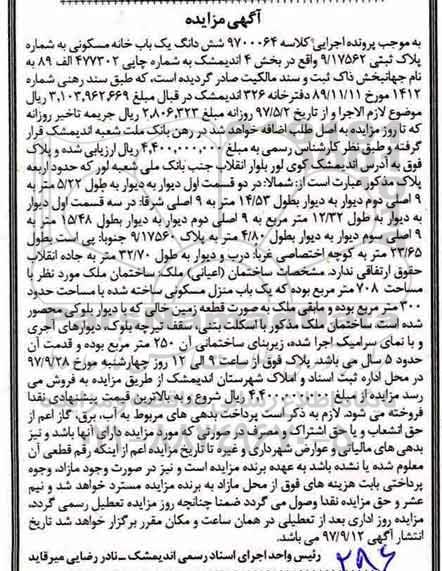 آگهی مزایده
به موجب پرونده اجرایی کلاسه ۹۷۰۰۰۶۴ شش دانگ یک باب خانه مسکونی به شماره
پلاک ثبتی ۹/۱۷۵۶۲ واقع در بخش ۴ اندیمشک به شماره چاپی ۴۷۷۳۰۲ الف ۸۹ به
نام جهانبخش ذاک ثبت و سند مالکیت صادر گردیده است، که طبق سند رهنی شماره
۱۴۱۲ مورخ ۸۹/۱۱/۱۱ دفترخانه ۳۲۶ اندیمشک در قبال مبلغ ۳,۱۰۳,۹۶۲,۶۶۹ ریال
موضوع لازم الاجرا و از تاریخ ۹۷/۵/۲ روزانه مبلغ ۲,۸۰۶,۳۲۳ ریال جریمه تاخیر روزانه
که تا روز مزایده به اصل طلب اضافه خواهد شد در رهن بانک ملت شعبه اندیمشک قرار
گرفته و طبق نظر کارشناس رسمی به مبلغ ۴,۴۰۰,۰۰۰,۰۰۰ ریال ارزیابی شده و پلاک
فوق به آدرس اندیمشک کوی لور بلوار انقلاب جنب بانک ملی شعبه لور که حدود اربعه
پلاک مذکور عبارت است از: شمالا: در دو قسمت اول دیوار به دیوار به طول ۵/۲۲ متر به
۹ اصلی دوم دیوار به دیوار بطول ۱۴/۵۳ متر به ۹ اصلی شرقا: در سه قسمت اول دیوار
به دیوار به طول ۱۲/۳۲ متر مربع به ۹ اصلی دوم دیوار به دیوار بطول ۱۵/۴۸ متر به
۹ اصلی سوم دیوار به دیوار بطول ۴/۸۰ متر به پلاک ۹/۱۷۵۶۰ جنوبا: پی است بطول
۲۳/۶۵ متر به کوچه اختصاصی غربا: درب و دیوار به طول ۳۲/۷۰ متر به جاده انقلاب
حقوق ارتفاقی ندارد. مشخصات ساختمان (اعیانی) ملک: ساختمان ملک مورد نظر با
مساحت ۷۰۸ متر مربع بوده که یک باب منزل مسکونی ساخته شده با مساحت حدود
۳۰۰ متر مربع بوده و مابقی ملک به صورت قطعه زمین خالی که با دیوار بلوکی محصور
شده است. ساختمان ملک مذکور با اسکلت بتنی، سقف تیرچه بلوک، دیوارهای آجری
و با نمای سرامیک اجرا شده، زیربنای ساختمانی آن ۲۵۰ متر مربع بوده و قدمت آن
حدود ۵ سال می باشد. پلاک فوق از ساعت ۹ الی ۱۲ روز چهارشنبه مورخ ۹۷/۹/۲۸
در محل اداره ثبت اسناد و املاک شهرستان اندیمشک از طریق مزایده به فروش می
رسد مزایده از مبلغ ۴,۴۰۰,۰۰۰,۰۰۰ ریال شروع و به بالاترین قیمت پیشنهادی نقدا
فروخته می شود. لازم به ذکر است پرداخت بدهی های مربوط به آب، برق، گاز اعم از
حق انشعاب و یا حق اشتراک و مصرف در صورتی که مورد مزایده دارای آنها باشد و نیز
بدهی های مالیاتی و عوارض شهرداری و غیره تا تاریخ مزایده اعم از اینکه رقم قطعی آن
معلوم شده یا نشده باشد به عهده برنده مزایده است و نیز در صورت وجود مازاد، وجوه
پرداختی بابت هزینه های فوق از محل مازاد به برنده مزایده مسترد خواهد شد و نیم
عشر و حق مزایده نقدا وصول می گردد ضمنا چنانچه روز مزایده تعطیل رسمی گردد،
مزایده روز اداری بعد از تعطیلی در همان ساعت و مکان مقرر برگزار خواهد شد تاریخ
انتشار آگهی ۹۷/۹/۱۲ می باشد.
رئیس واحد اجرای اسناد رسمی اندیمشک ـ نادر رضایی میرقاید